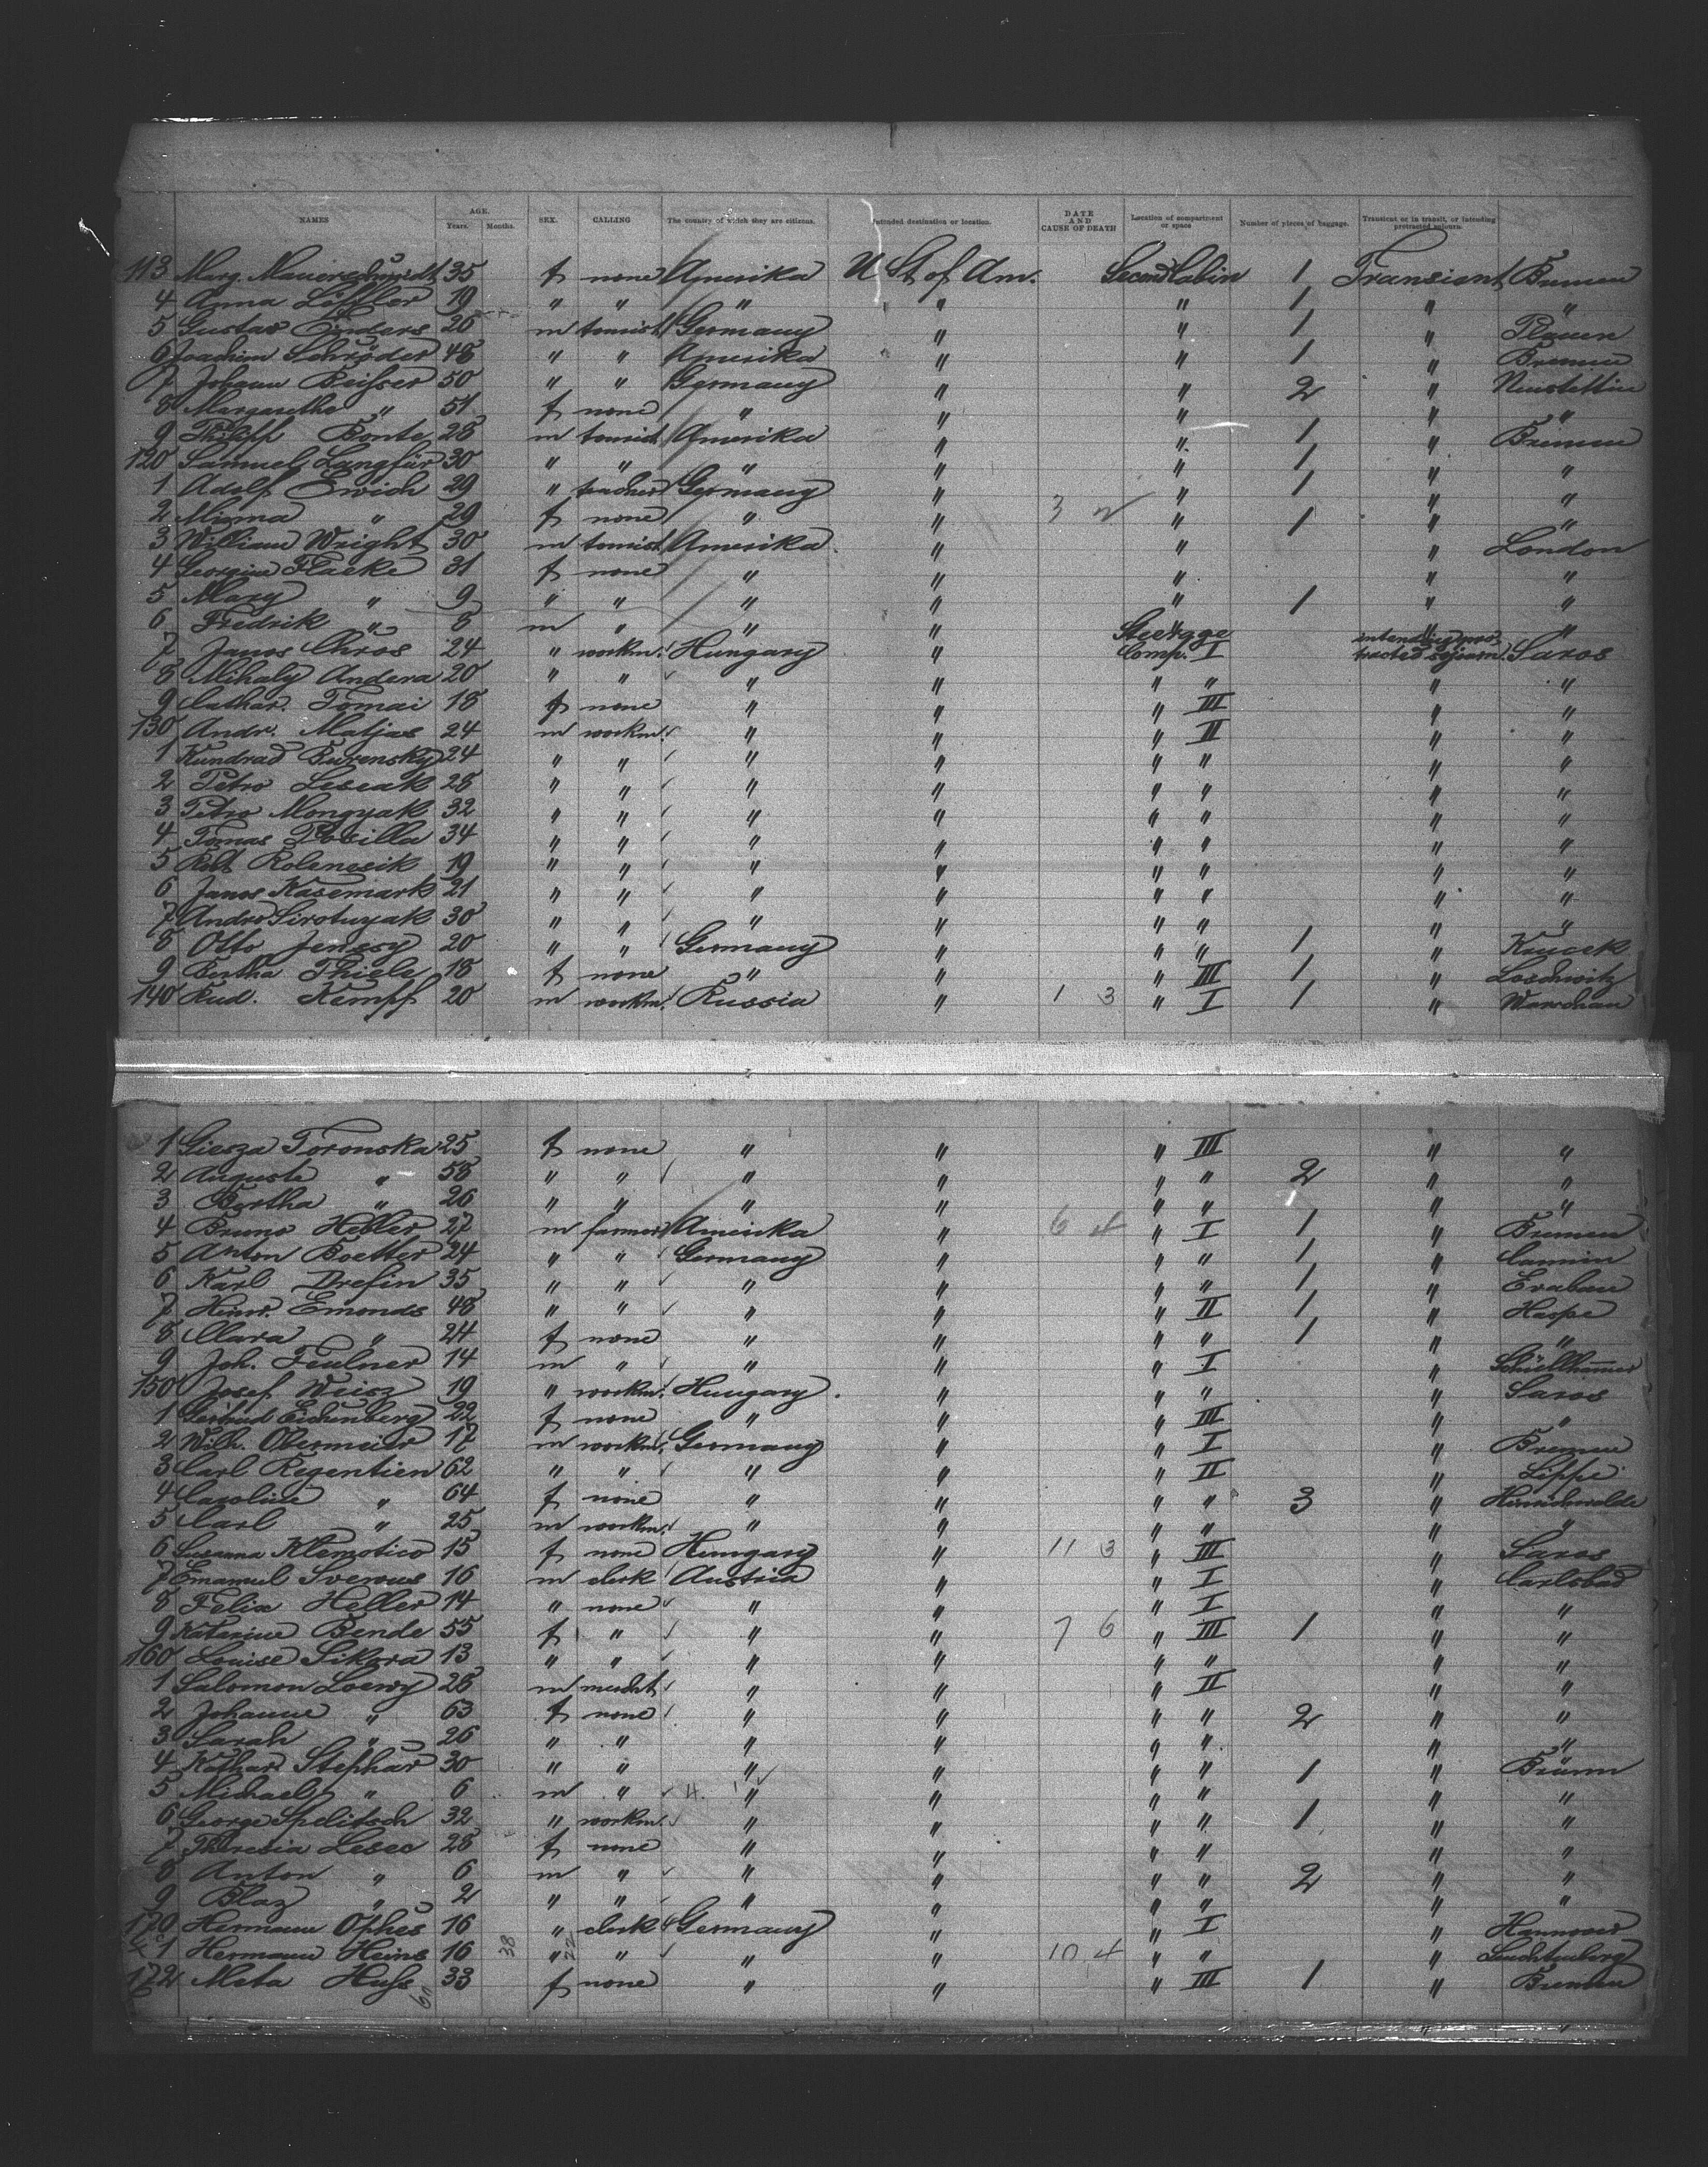 NAMES AGE. Years. Months. SEX. CALLING The country of which they are citizens. Intended destination or location. DATE AND CAUSE OF DEATH Location of compartment or space Number of pieces of baggage. Transient or in transit, or intending protracted sojourn.
113 Marg. 35 f none Amerika U St of Am. Second Cabin 1 Transient Bremen
4 Anna Löffler 19 " " " " " 1 " "
5 Gustav Enders 26 m tourist Germany " " 1 " Plauen
6 Joachim Schröder 48 " " Amerika " " 1 " Bremen
7 Johann Beisser 50 " " Germany " " 2 " Neustettin
8 Margarethe " 51 f none " " " " "
9 Philipp Bonte 28 m tourist Amerika " " 1 " Bremen
120 Samuel Langfür 30 " " " " " 1 " "
1 Adolf Ewich 29 " teacher Germany " " 1 " "
2 Minna " 29 f none " " 3 " 1 " "
3 William Wright 30 m tourist Amerika " " " London
4 Georgine Flacke 31 f none " " " " "
5 Mary " 9 " " " " " 1 " "
6 Fredrik " 8 m " " " " " "
7 Janos Chros 24 " workm. Hungary " Steerage Comp. I intending protracted sojourn. Saros
8 Mihaly Andera 20 " " " " " " " "
9 Cathar. Tomai 18 f none " " " III " "
130 Andr. Matjas 24 m workm. " " " II " "
1 Kundrad Burensky 24 " " " " " " " "
2 Petro Leseak 28 " " " " " " " "
3 Petro Mongyak 32 " " " " " " " "
4 Tomas Posilla 34 " " " " " " " "
5 Rolenesik 19 " " " " " " " "
6 Janos Kasemark 21 " " " " " " " "
7 Andro Sirotnyak 30 " " " " " " " "
8 Otto Jenssy 20 " " Germany " " " 1 "
9 Bertha Thiele 18 f none " " " III 1 " Loschwitz
140 Rud. Kempf 20 m workm. Russia " 1 3 " I 1 " Warschau
1 Giesza Toronska 25 f none " " " III " "
2 Auguste " 58 " " " " " " 2 " "
3 Bertha " 26 " " " " " " " "
4 Bruno Heller 27 m farmer Amerika " 6 4 " I 1 " Bremen
5 Anton Boetter 24 " " Germany " " " 1 " Cammin
6 Karl Drefin 35 " " " " " " 1 "
7 Heinr. Emonds 48 " " " " " II 1 " Haspe
8 Clara " 24 f none " " " " 1 " "
9 Joh. Feulner 14 m " " " " I "
150 Josef Weisz 19 " workm. Hungary " " " " Saros
1 Gertrud Eichenberg 22 f none " " " III " "
2 Wilh. Obermeier 17 m workm. Germany " " I " Bremen
3 Carl Regentien 62 " " " " " II " Lippe
4 Caroline " 64 f none " " " " 3 "
5 Carl " 25 m workm. " " " " " "
6 Susanna Klemotico 15 f none Hungary " 11 3 " III " Saros
7 Emanuel 16 m clerk Austria " " I " Carlsbad
8 Felix Heller 14 " none " " " I " "
9 Katerine Bende 55 f " " " 7 6 " III 1 " "
160 Louise Sikora 13 " " " " " " " "
1 Salomon Loewy 28 m mercht " " " II " "
2 Johanne " 63 f none " " " " 2 " "
3 Sarah " 26 " " " " " " " "
4 Kathar. Stephar 30 " " " " " " 1 " Brünn
5 Michael " 6 m " 4 " " " " " "
6 George Spelitsch 32 " workm. " " " " 1 " "
7 Theresia Lesec 28 f none " " " " " "
8 Anton " 6 m " " " " " 2 " "
9 Blaz " 2 " " " " " " " "
170 Hermann Ophes 16 " clerk Germany " " I " Hannover
1 Hermann Heins 16 38 " 22 " " " 10 4 " " " Leuchtenberg
172 Meta Huss 33 f none " " " III 1 " Bremen